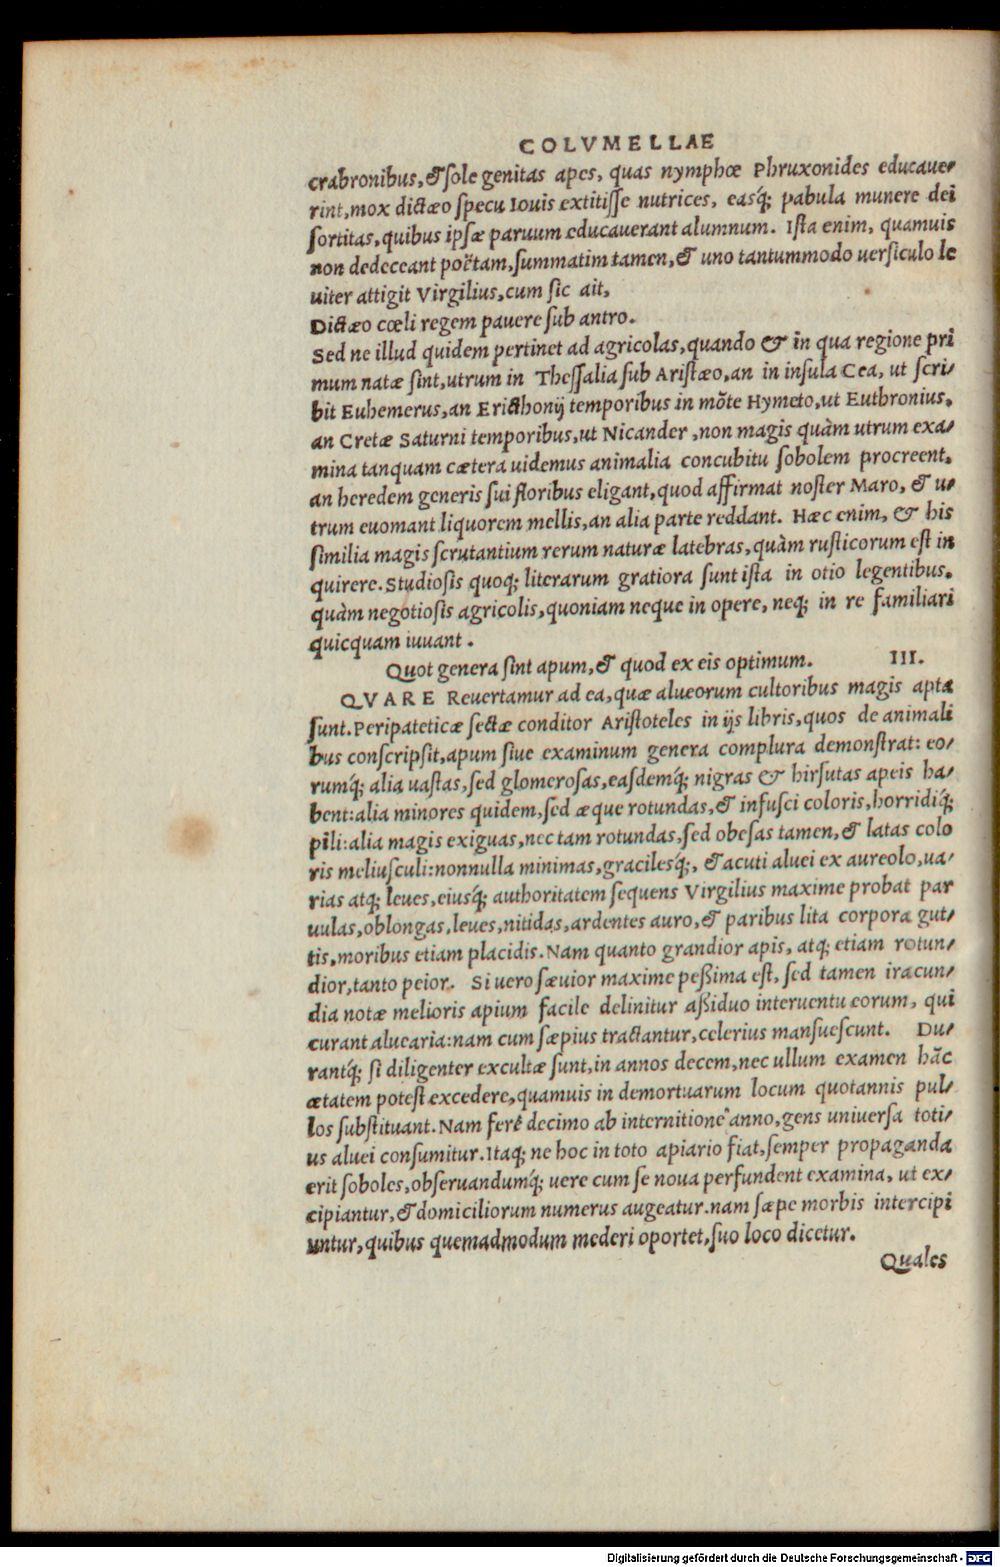 COLVMELLAE
crabronibus, & sole genitas apes, quas nymphœ Phruxonides educaue-
rint, mox dictæo specu Iouis extitisse nutrices, easq́; pabula munere dei
sortitas, quibus ipsæ paruum educauerant alumnum. Ista enim, quamuis
non dedeceant poẽtam, summatim tamen, & uno tantummodo uersiculo le
uiter attigit Virgilius, cum sic ait,
Dictæo cœli regem pauere sub antro.
Sed ne illud quidem pertinet ad agricolas, quando & in qua regione pri
mum natæ sint, utrum in Thessalia sub Aristæo, an in insula Cea, ut scri-
bit Euhemerus, an Ericthonij temporibus in mõte Hymeto, ut Euthronius,
an Cretæ Saturni temporibus, ut Nicander, non magis quàm utrum exa-
mina tanquam cætera uidemus animalia concubitu sobolem procreent,
an heredem generis sui floribus eligant, quod affirmat noster Maro, & u-
trum euomant liquorem mellis, an alia parte reddant. Hæc enim, & his
similia magis scrutantium rerum naturæ latebras, quàm rusticorum est in
quirere. Studiosis quoq; literarum gratiora sunt ista in otio legentibus,
quàm negotiosis agricolis, quoniam neque in opere, neq; in re familiari
quicquam iuuant.
Quot genera sint apum, & quod ex eis optimum. III.
QVARE Reuertamur ad ea, quæ alueorum cultoribus magis apta
sunt. Peripateticæ sectæ conditor Aristoteles in ijs libris, quos de animali
bus conscripsit, apum siue examinum genera complura demonstrat: eo-
rumq́; alia uastas, sed glomerosas, easdemq́; nigras & hirsutas apeis ha-
bent: alia minores quidem, sed æque rotundas, & infusci coloris, horridiq́;
pili: alia magis exiguas, nec tam rotundas, sed obesas tamen, & latas colo
ris meliusculi: nonnulla minimas, gracilesq́;, & acuti aluei ex aureolo, ua-
rias atq; leues, eiusq́; authoritatem sequens Virgilius maxime probat par
uulas, oblongas, leues, nitidas, ardentes auro, & paribus lita corpora gut-
tis, moribus etiam placidis. Nam quanto grandior apis, atq; etiam rotun-
dior, tanto peior. Si uero sæuior maxime peßima est, sed tamen iracun-
dia notæ melioris apium facile delinitur aßiduo interuentu eorum, qui
curant aluearia: nam cum sæpius tractantur, celerius mansuescunt. Du-
rantq́; si diligenter excultæ sunt, in annos decem, nec ullum examen hãc
ætatem potest excedere, quamuis in demortuarum locum quotannis pul-
los substituant. Nam ferè decimo ab internitione anno, gens uniuersa toti-
us aluei consumitur. Itaq; ne hoc in toto apiario fiat, semper propaganda
erit soboles, obseruandumq́; uere cum se noua perfundent examina, ut ex-
cipiantur, & domiciliorum numerus augeatur. nam sæpe morbis intercipi
untur, quibus quemadmodum mederi oportet, suo loco dicetur.
Quales
Digitalisierung gefördert durch die Deutsche Forschungsgemeinschaft - DFG